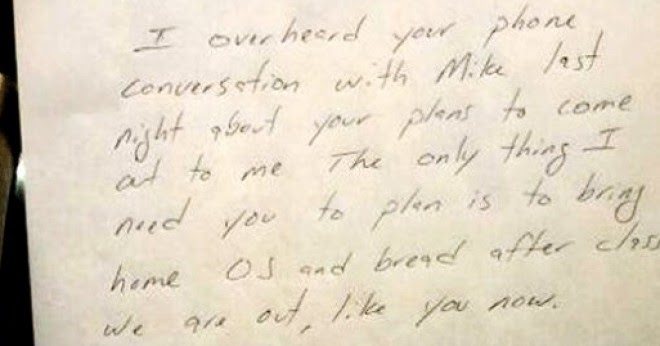 I overheard your phone
conversation with Mike last
night about your plans to come
out to me The only thing I
need you to plan is to bring
home OJ and bread after class
we are out, like you now.